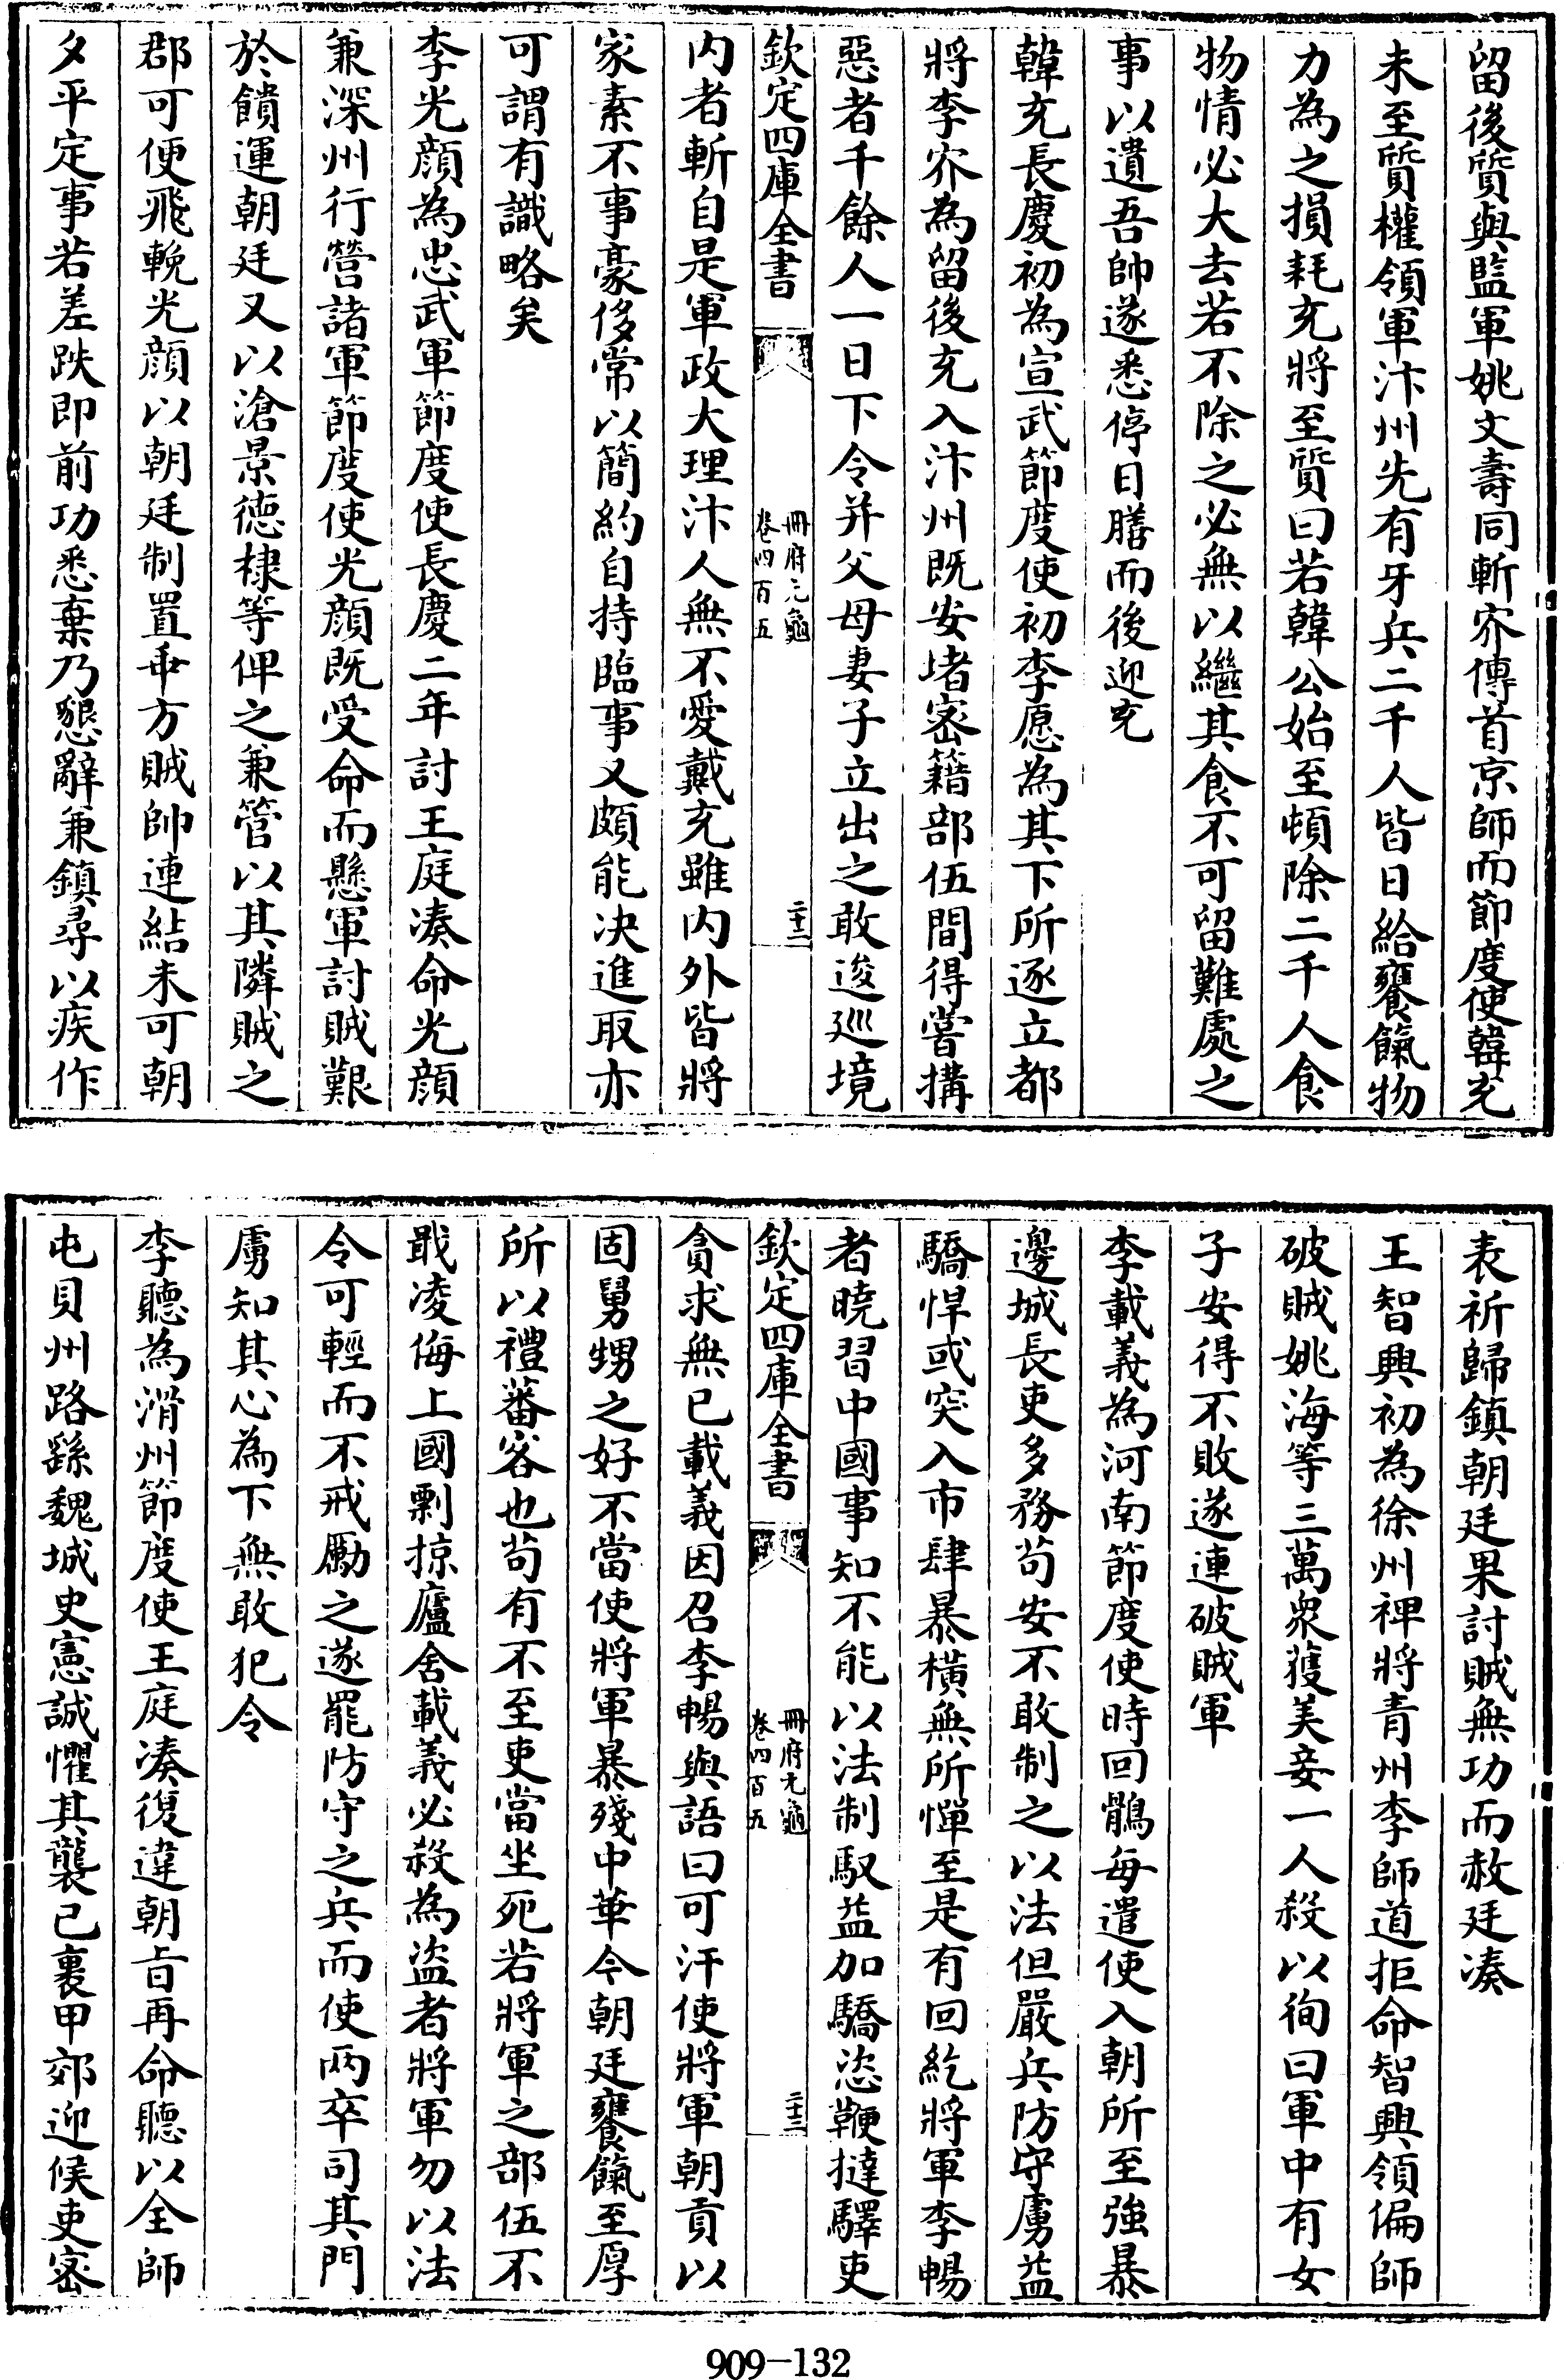 留後質與監軍姚文壽同斬㝏傳首京師而節度使韓充
未至質權領軍汴州先有牙兵二千人皆日給饔餼物
力為之損耗充將至質曰若韓公始至頓除二千人食
物情必大去若不除之必無以繼其食不可留難處之
事以遺吾帥遂悉停日膳而後迎充
韓充長慶初為宣武節度使初李愿為其下所逐立都
將李㝏為留後充入汴州既安堵密籍部伍間得嘗搆
惡者千餘人一日下令并父母妻子立出之敢逡巡境
欽定四庫全書
冊府元龜
卷四百五
二十二
内者斬自是軍政大理汴人無不愛戴充雖内外皆將
家素不事豪侈常以簡約自持臨事又頗能决進取亦
可謂有識略矣
李光顔為忠武軍節度使長慶二年討王庭凑命光顔
兼深州行營諸軍節度使光顔既受命而懸軍討賊艱
於饋運朝廷又以滄景德棣等俾之兼管以其隣賊之
郡可便飛輓光顔以朝廷制置乖方賊帥連結未可朝
夕平定事若差跌即前功悉棄乃懇辭兼鎮尋以疾作
表祈歸鎮朝廷果討賊無功而赦廷凑
王智興初為徐州禆將青州李師道拒命智興領偏師
破賊姚海等三萬衆獲美妾一人殺以徇曰軍中有女
子安得不敗遂連破賊軍
李載義為河南節度使時回鶻每遣使入朝所至強暴
邊城長吏多務苟安不敢制之以法但嚴兵防守虜益
驕悍或突入市肆暴横無所憚至是有回紇將軍李暢
者曉習中國事知不能以法制馭益加驕恣鞭撻驛吏
欽定四庫全書
冊府元龜
卷四百五
二十三
貪求無已載義因召李暢與語曰可汗使將軍朝貢以
固舅甥之好不當使將軍暴殘中華今朝廷饔餼至厚
所以禮蕃客也苟有不至吏當坐死若將軍之部伍不
戢凌侮上國剽掠廬舍載義必殺為盗者將軍勿以法
令可輕而不戒勵之遂罷防守之兵而使兩卒司其門
虜知其心為下無敢犯令
李聽為滑州節度使王庭凑復違朝旨再命聽以全師
屯貝州路繇魏城史憲誠懼其襲已裹甲郊迎候吏密
909-132